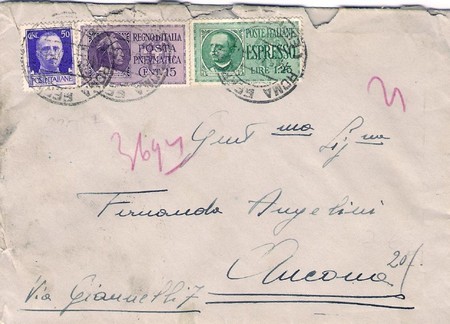 CENT. 50
POSTE ITALIANE
REGNO D'ITALIA
POSTA
PNEUMATICA
CENT. 15
POSTE ITALIANE
ESPRESSO
LIRE 1.25
ROMA
3694
Gent ma Sig na
Fernanda Angelini
Ancona
Via Giannelli 7